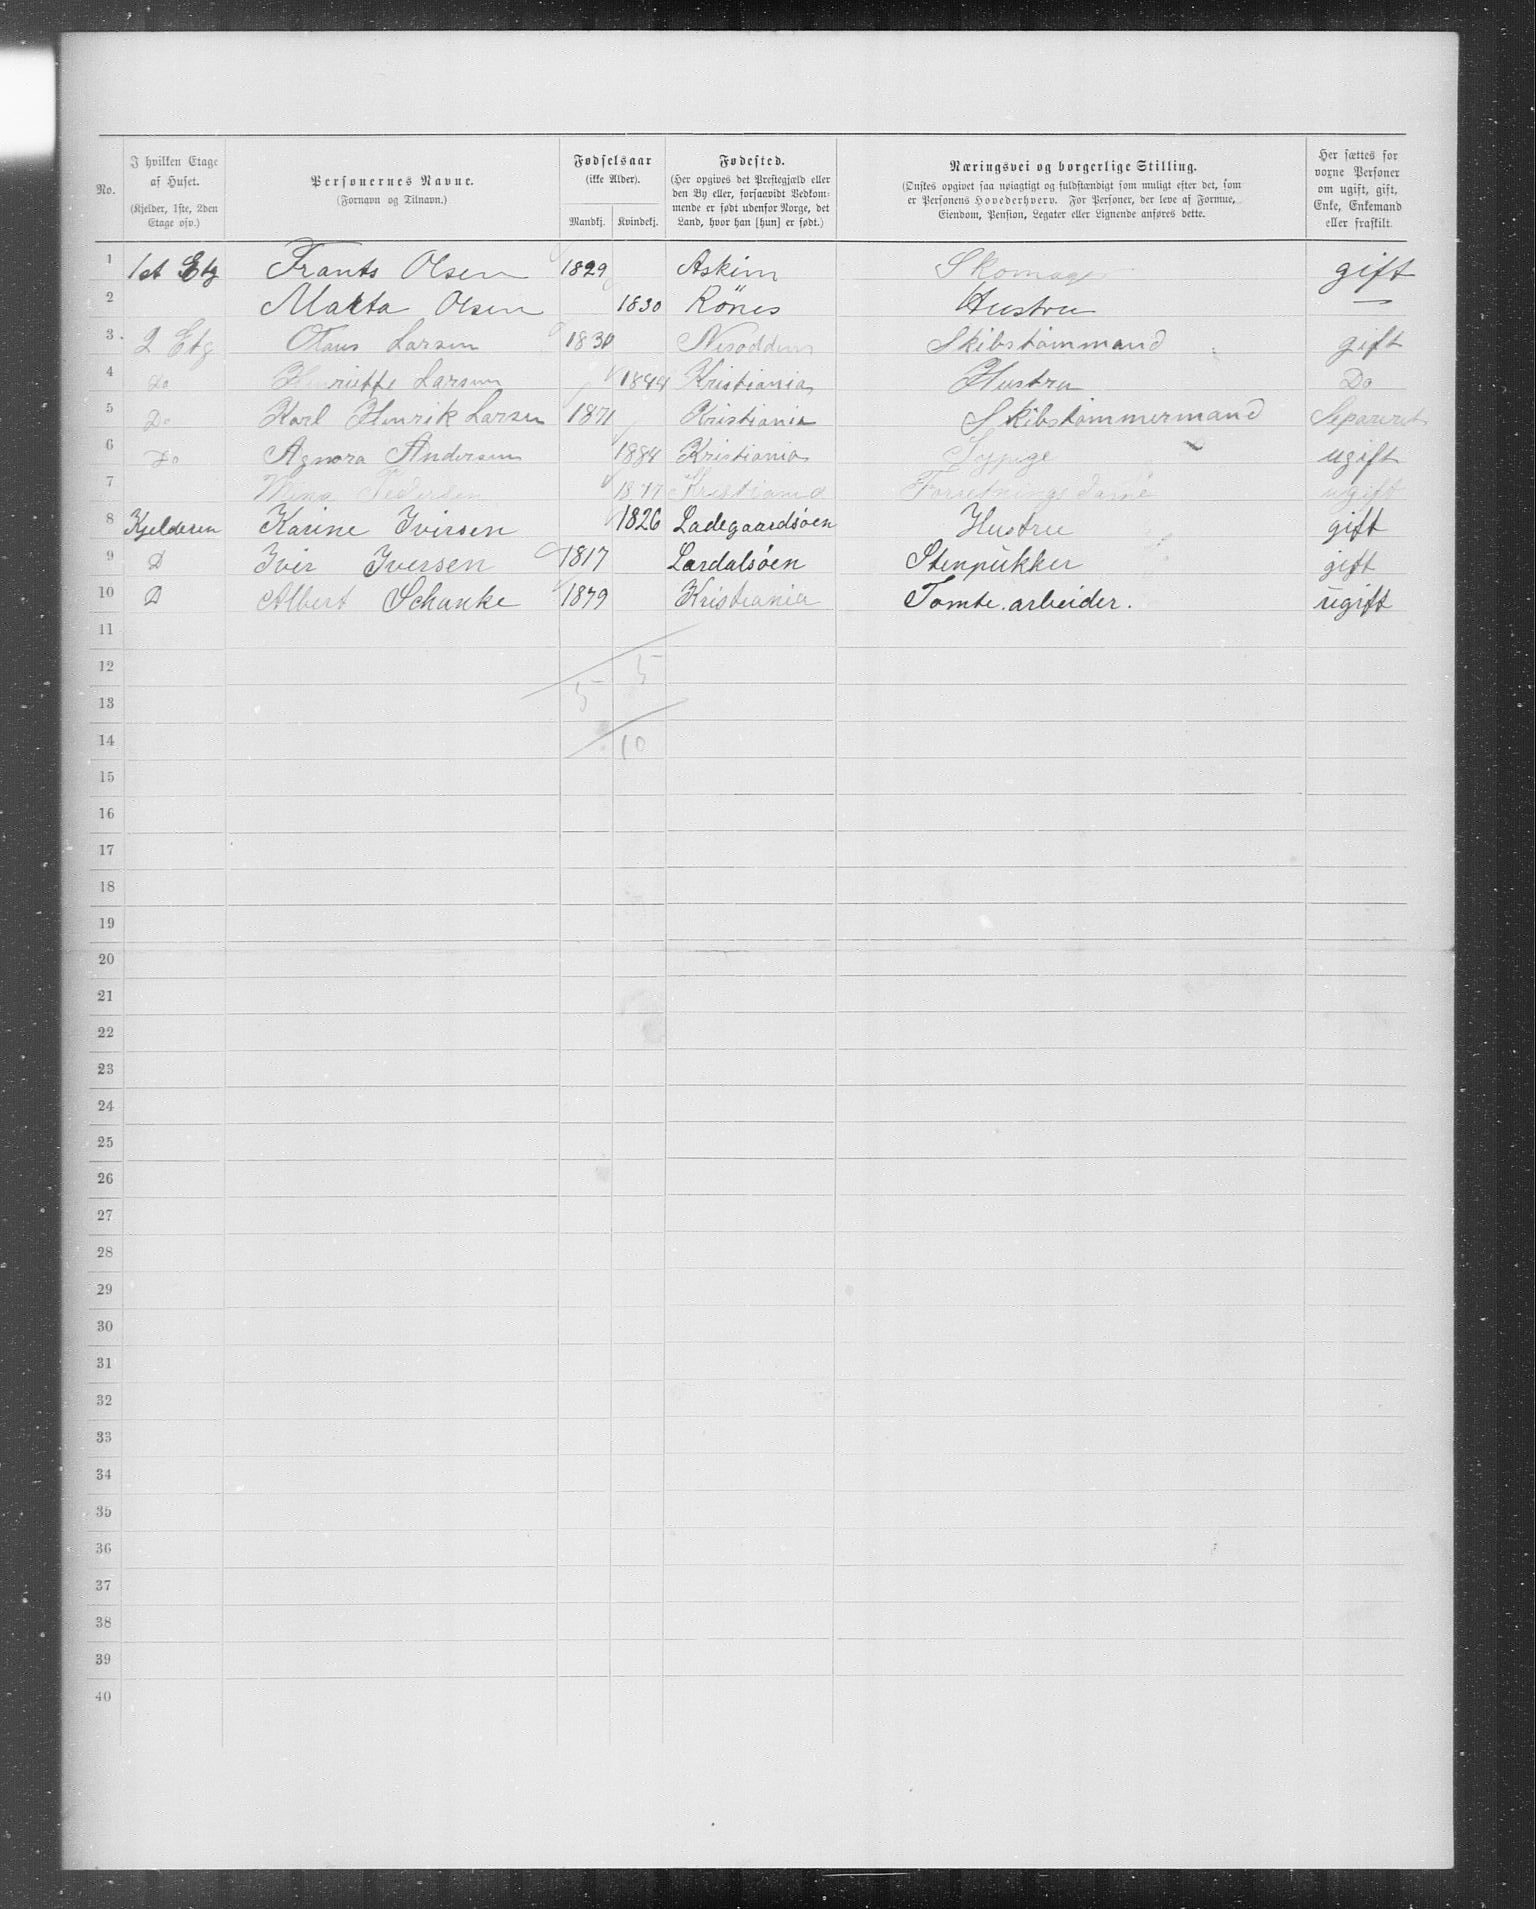 No.
I hvilken Etage af Huset. (Kjelder, 1ste, 2den Etage osv.)
Personernes Navne. (Fornavn og Tilnavn.)
Fødselsaar (ikke Alder). Mandkj. Kvindekj.
Fødested. (Her opgives det Prestegjæld eller den By eller, forsaavidt Vedkommende er født udenfor Norge, det Land, hvor han [hun] er født.)
Næringsvei og borgerlige Stilling. (Ønskes opgivet saa nøiagtigt og fuldstændigt som muligt efter det, som er Personens Hovederhverv. For Personer, der leve af Formue, Eiendom, Pension, Legater eller Lignende anføres dette.)
Her sættes for voxne Personer om ugift, gift, Enke, Enkemand eller fraskilt.
1 1st Etg Frants Olsen 1829 Askim Skomager gift
2 Marta Olsen 1830 Rönes Hustru —
3 2 Etg Olaus Larsen 1830 Nesodden Skibstömmand gift
4 Do Henriette Larsen 1844 Kristiania Hustru Do
5 Do Karl Henrik Larsen 1871 Kristiania Skibstömmermand Separeret
6 Do Agnora Andersen 1884 Kristiania Sypige ugift
7 Mina Pedersen 1877 Kristiania Forretningsdame ugift
8 Kjelderen Karine Iversen 1826 Ladegaardsöen Hustru gift
9 D Iver Iversen 1817 Lardalsöen Stenpukker gift
10 D Albert Schanke 1879 Kristiania Tomte.arbeider. ugift
11
12 5
13 5
14 10
15
16
17
18
19
20
21
22
23
24
25
26
27
28
29
30
31
32
33
34
35
36
37
38
39
40